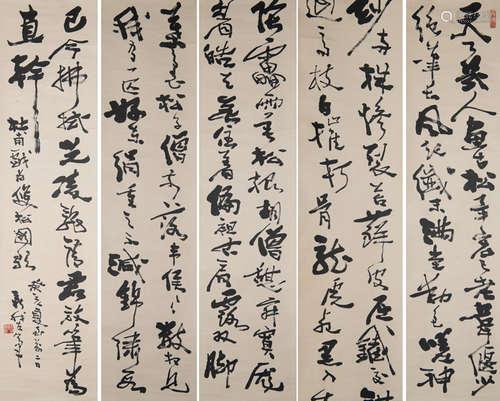 天下幾人畫古松畢宏已老韋偃少
絕筆長風起纖末滿堂動色嗟神
妙兩株慘裂苔蘚皮屈鐵交錯
迴高枝白摧朽骨龍虎死黑入太
陰雷雨垂松根胡僧憩寂寞龐
眉皓首無住著偏袒右肩露雙腳
葉裏松子僧前落韋侯〻〻數相見
我有一匹好東絹重之不減錦繡段
已令拂拭光凌亂請君放筆為
直幹 杜甫戲為雙松圖歌
癸亥夏 二日